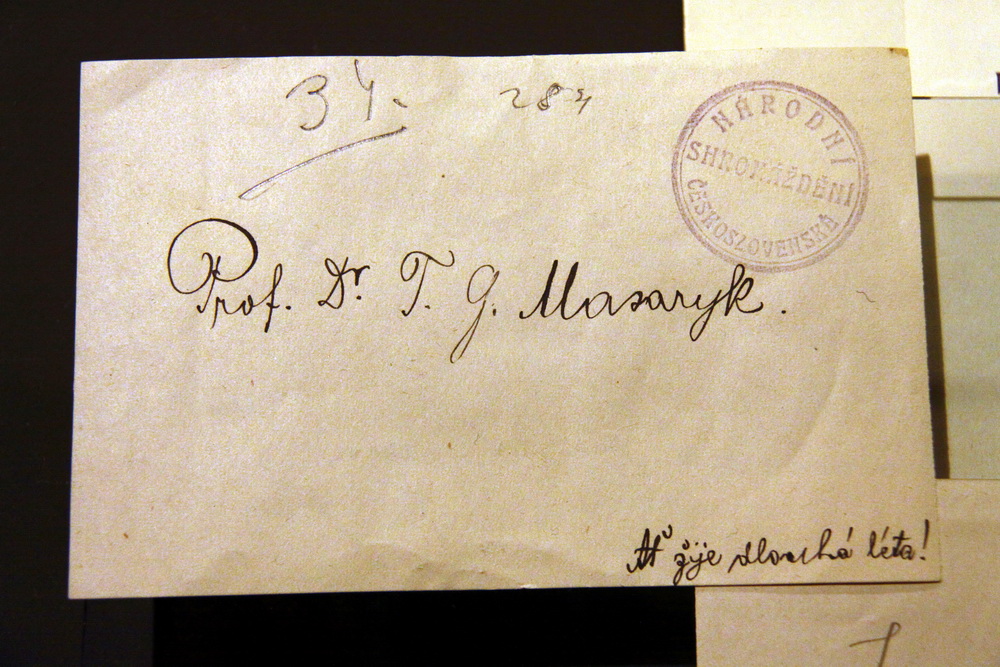 34.
284
NÁRODNÍ
SHROMÁŽDĚNÍ
ČESKOSLOVENSKÉ
Prof. Dr. T. G. Masaryk.
Ať žije dlouhá léta!